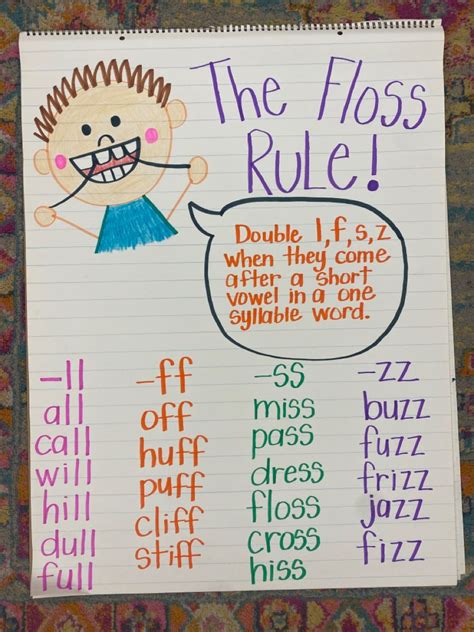 The Floss
Rule!
Double l,f,s,z
when they come
after a short
vowel in a one
syllable word.
-ll
all
call
will
hill
dull
full
-ff
off
huff
puff
cliff
stiff
-ss
miss
pass
dress
floss
cross
hiss
-zz
buzz
fuzz
frizz
jazz
fizz